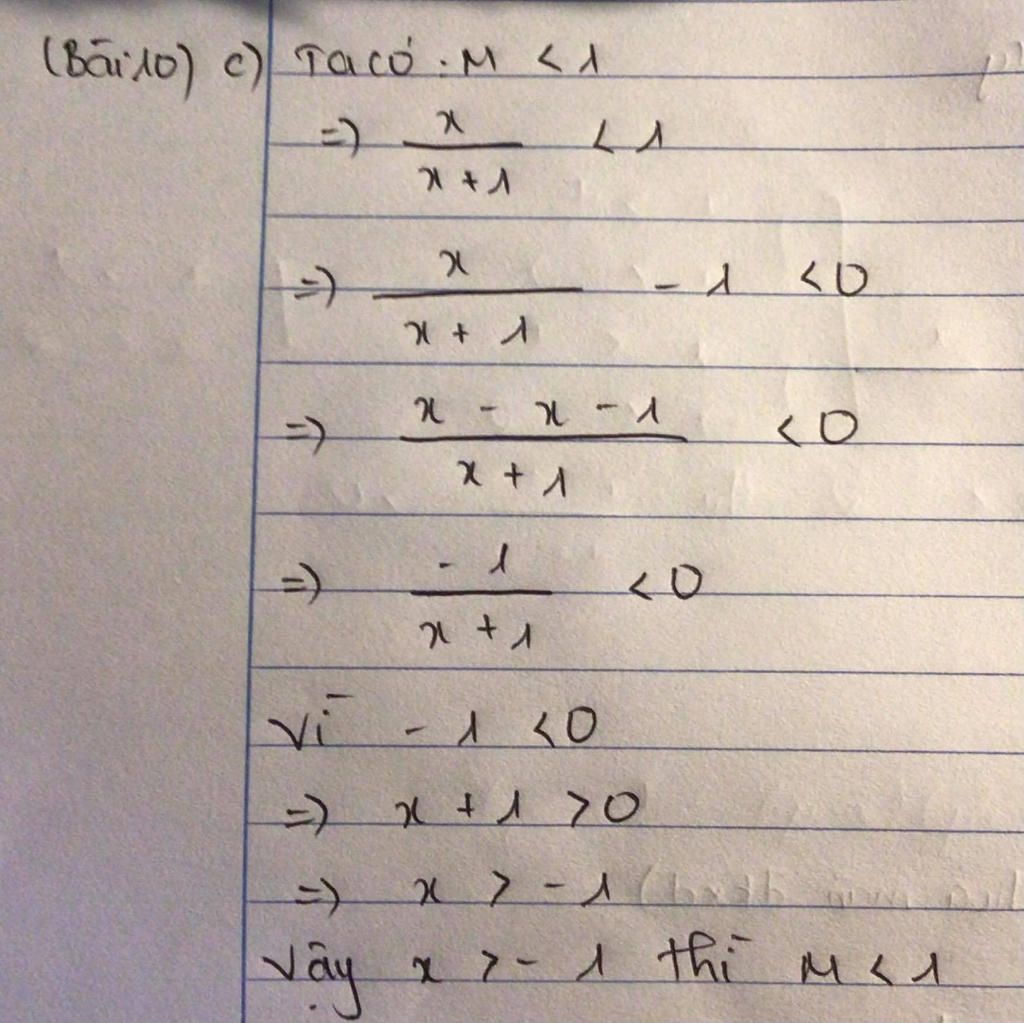 (Bài 10) c) Ta có : M < 1
=) x / x + 1 < 1
=) x / x + 1 - 1 < 0
=) x - x - 1 / x + 1 < 0
=) - 1 / x + 1 < 0
Vì - 1 < 0
=) x + 1 > 0
=) x > - 1
Vậy x > - 1 thì M < 1